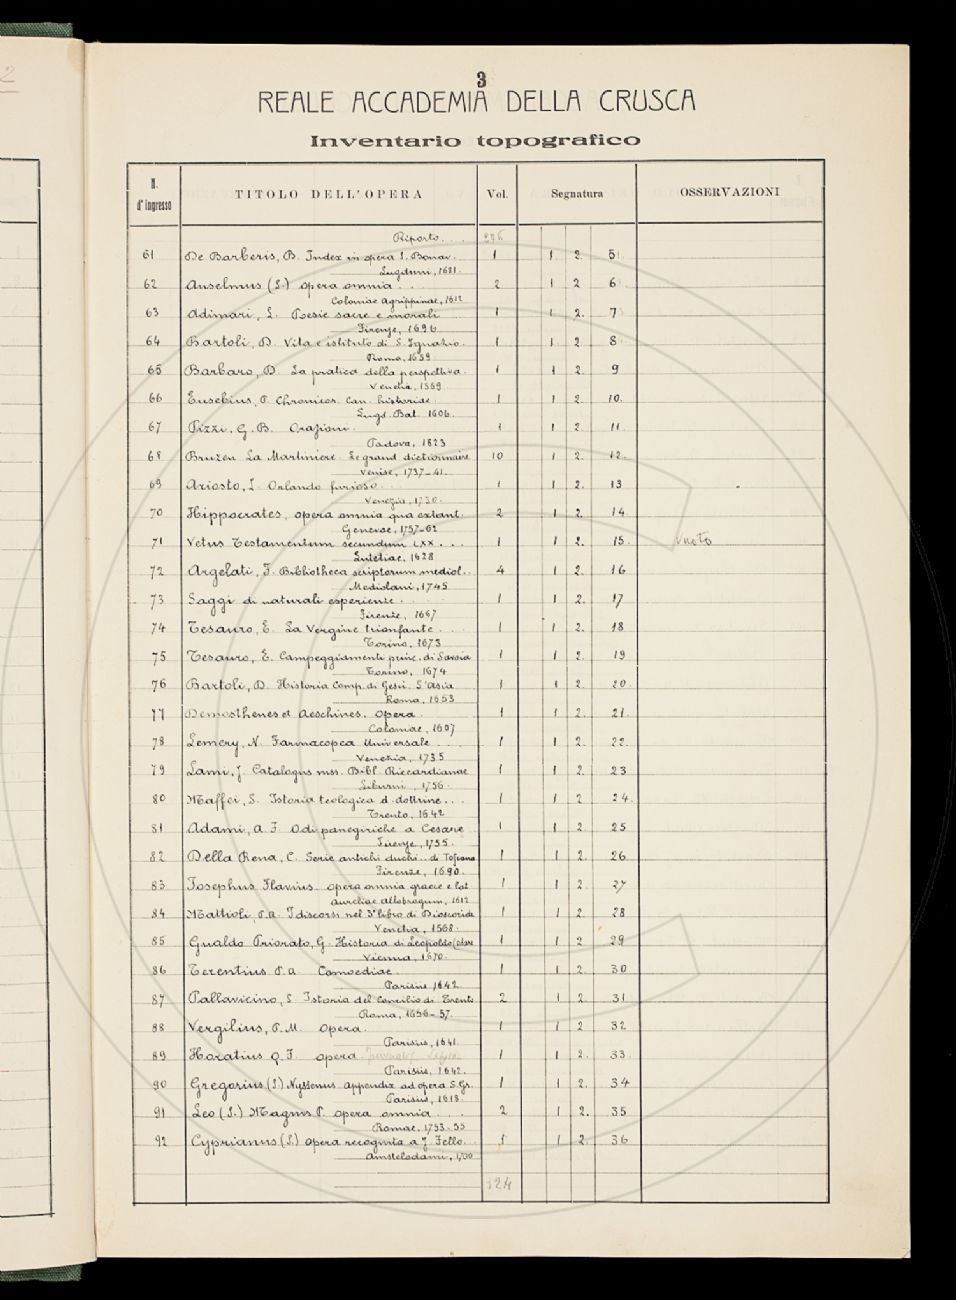 2
3
REALE ACCADEMIA DELLA CRUSCA
Inventario topografico
N. d'ingresso TITOLO DELL'OPERA Vol. Segnatura OSSERVAZIONI
Riporto...
61 De Barberis, B. Index in opera S. Bonav. 1 1 2 5
Lugduni, 1681.
62 Anselmus (S.) opera omnia... 2 1 2 6
Coloniae Agrippinae, 1612
63 Adimari, L. Poesie sacre e morali 1 1 2. 7
Firenze, 1696
64 Bartoli, D. Vita e istituto di S. Ignazio. 1 1 2 8
Roma, 1659
65 Barbaro, D. La pratica della perspettiva. 1 1 2 9
Venetia, 1569
66 Eusebius, P. Chronicor. Can. historiae. 1 1 2. 10.
Lugd. Bat. 1606.
67 Pizzi, G. B. Orazioni. 1 1 2 11
Padova, 1823
68 Bruzen La Martiniere. Le grand dictionnaire 10 1 2. 12.
Venise, 1737-41.
69 Ariosto, L. Orlando furioso... 1 1 2. 13
Venezia, 1730.
70 Hippocrates, opera omnia qua extant. 2 1 2. 14
Genevae, 1757-62
71 Vetus Testamentum secundum LXX... 1 1 2. 15. vuoto
Lutetiae, 1628
72 Argelati, F. Bibliotheca scriptorum mediol.. 4 1 2. 16
Mediolani, 1745
73 Saggi di naturali esperienze... 1 1 2. 17
Firenze, 1667
74 Tesauro, E. La Vergine trionfante... 1 1 2. 18
Torino, 1673
75 Tesauro, E. Campeggiamenti princ. di Savoia 1 1 2. 19
Torino, 1674
76 Bartoli, D. Historia Comp. di Gesù. L'Asia 1 1 2. 20.
Roma, 1653
77 Demosthenes et Aeschines. Opera. 1 1 2. 21.
Coloniae, 1607
78 Lemery, N. Farmacopea Universale... 1 1 2. 22.
Venezia, 1735
79 Lami, J. Catalogus mss. Bibl. Riccardianae 1 1 2. 23
Liburni, 1756.
80 Maffei, S. Istoria teologica d. dottrine... 1 1 2 24.
Trento, 1742
81 Adami, A. F. Odi panegiriche a Cesare 1 1 2. 25
Firenze, 1755.
82 Della Rena, C. Serie antichi duchi.. di Toscana 1 1 2. 26
Firenze, 1690.
83 Josephus Flavius. opera omnia graece e lat. 1 1 2. 27
Aureliae Allobrogum, 1612
84 Mattioli, P. A. I discorsi nel 3° libro di Dioscoride 1 1 2. 28
Venetia, 1568.
85 Gualdo Priorato, G. Historia di Leopoldo Cesare 1 1 2 29
Vienna, 1670.
86 Terentius P. A. Comoediae. 1 1 2. 30
Parisiis, 1642.
87 Pallavicino, S. Istoria del Concilio di Trento 2 1 2. 31
Roma, 1656-57.
88 Vergilius, P. M. Opera. 1 1 2 32
Parisiis, 1641.
89 Horatius Q. F. opera 1 1 2. 33.
Parisiis, 1642.
90 Gregorius (S.) Nyssenus appendix ad opera S. Gr. 1 1 2. 34
Parisiis, 1618.
91 Leo (S.) Magnus P. opera omnia... 2 1 2. 35
Romae, 1753-55
92 Cyprianus (S.) opera recognita a J. Fello... 1 1 2. 36
Amstelodami, 1700
324